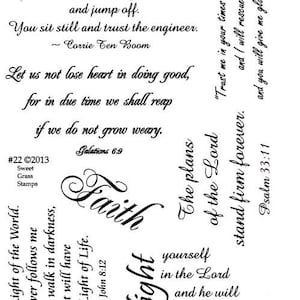 and jump off.
You sit still and trust the engineer.
~ Corrie Ten Boom
Let us not lose heart in doing good,
for in due time we shall reap
if we do not grow weary.
Galatians 6:9
#22 ©2013
Sweet
Grass
Stamps
Faith
"Trust me in your times
and I will rescue
and you will give me glo
The plans
of the Lord
stand firm forever.
Psalm 33:11
ight of the World.
ver follows me
walk in darkness,
t will have
ight of Life.
John 8:12
ight
yourself
in the Lord
and he will